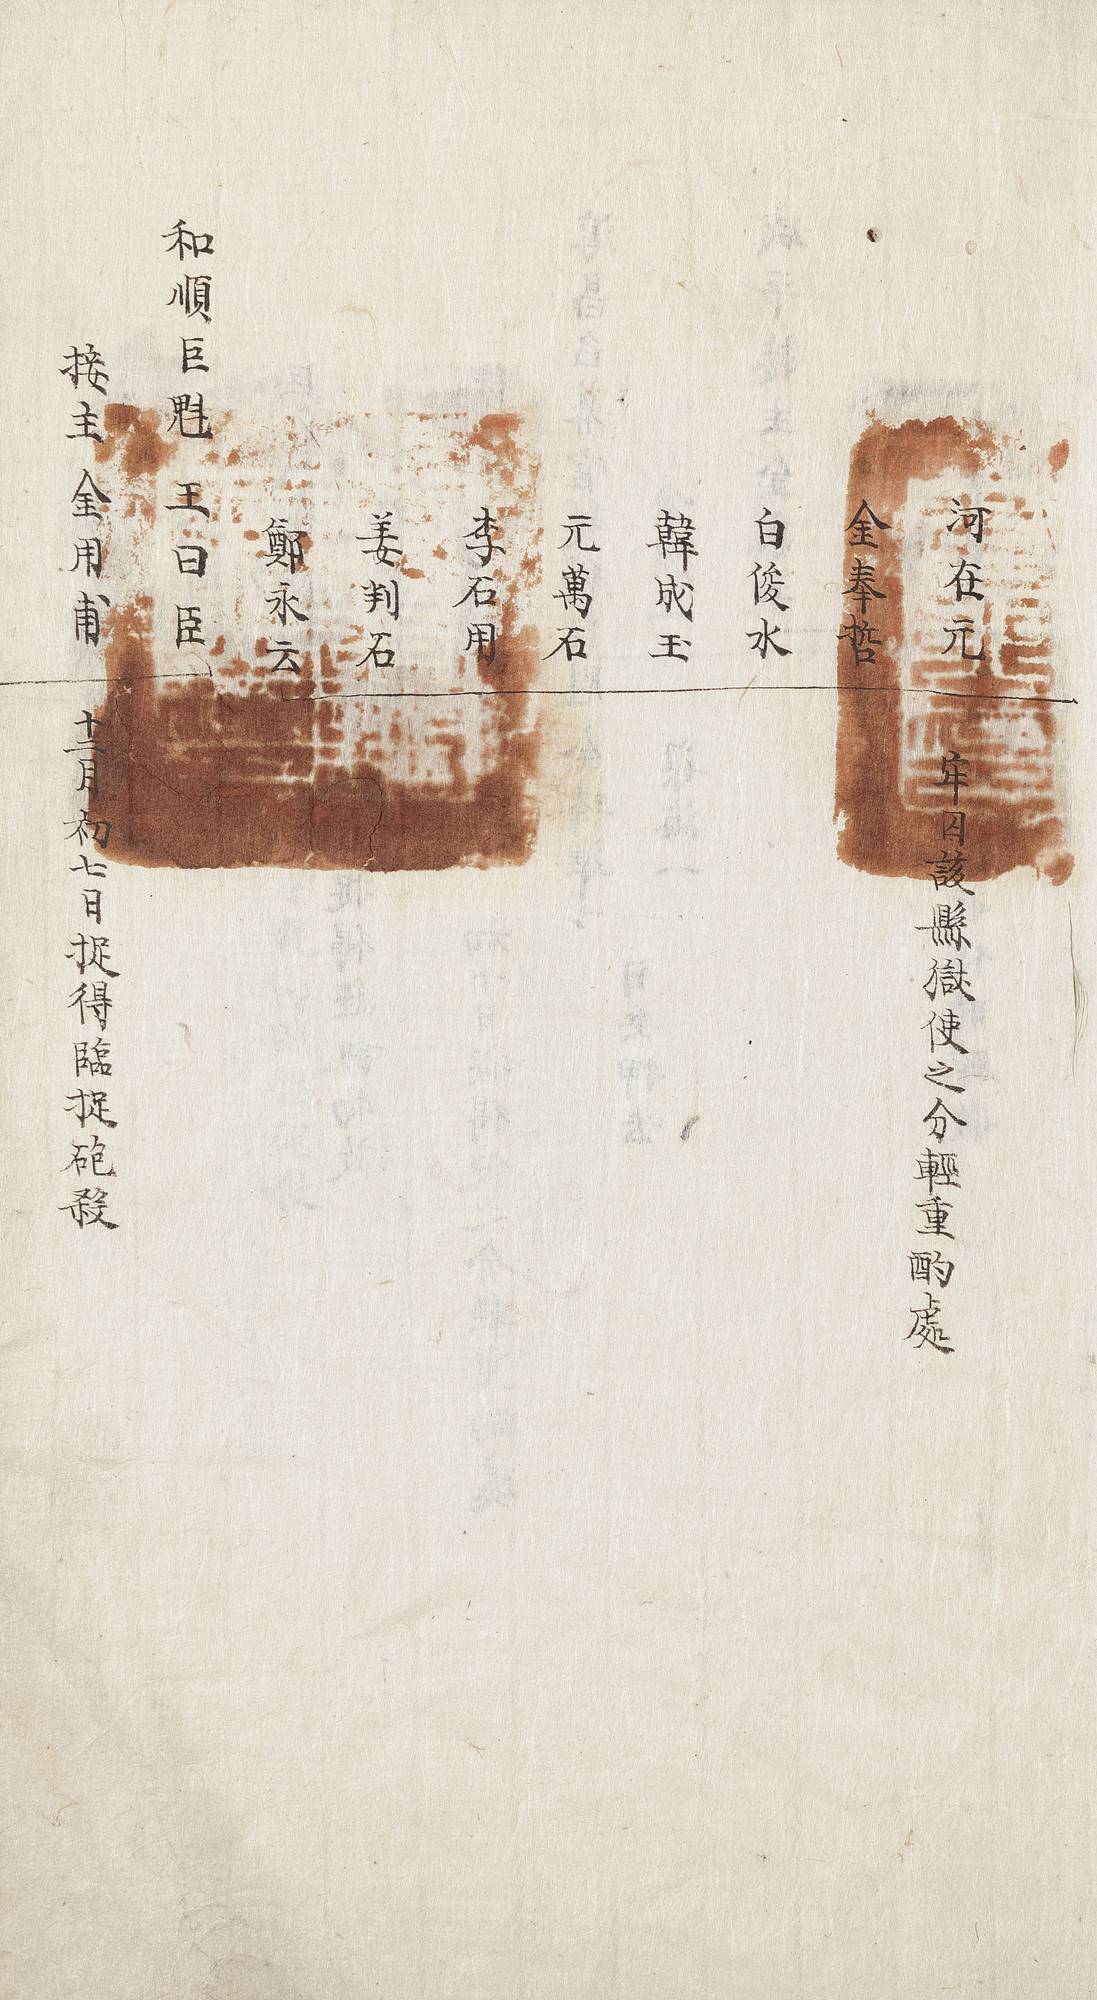 河在元 牢囚該縣獄使之分輕重酌處
金奉哲
白俊水
韓成玉
元萬石
李石用
姜判石
鄭永云
和順巨魁 王曰臣
接主 金用甫 十二月初七日捉得臨捉砲殺